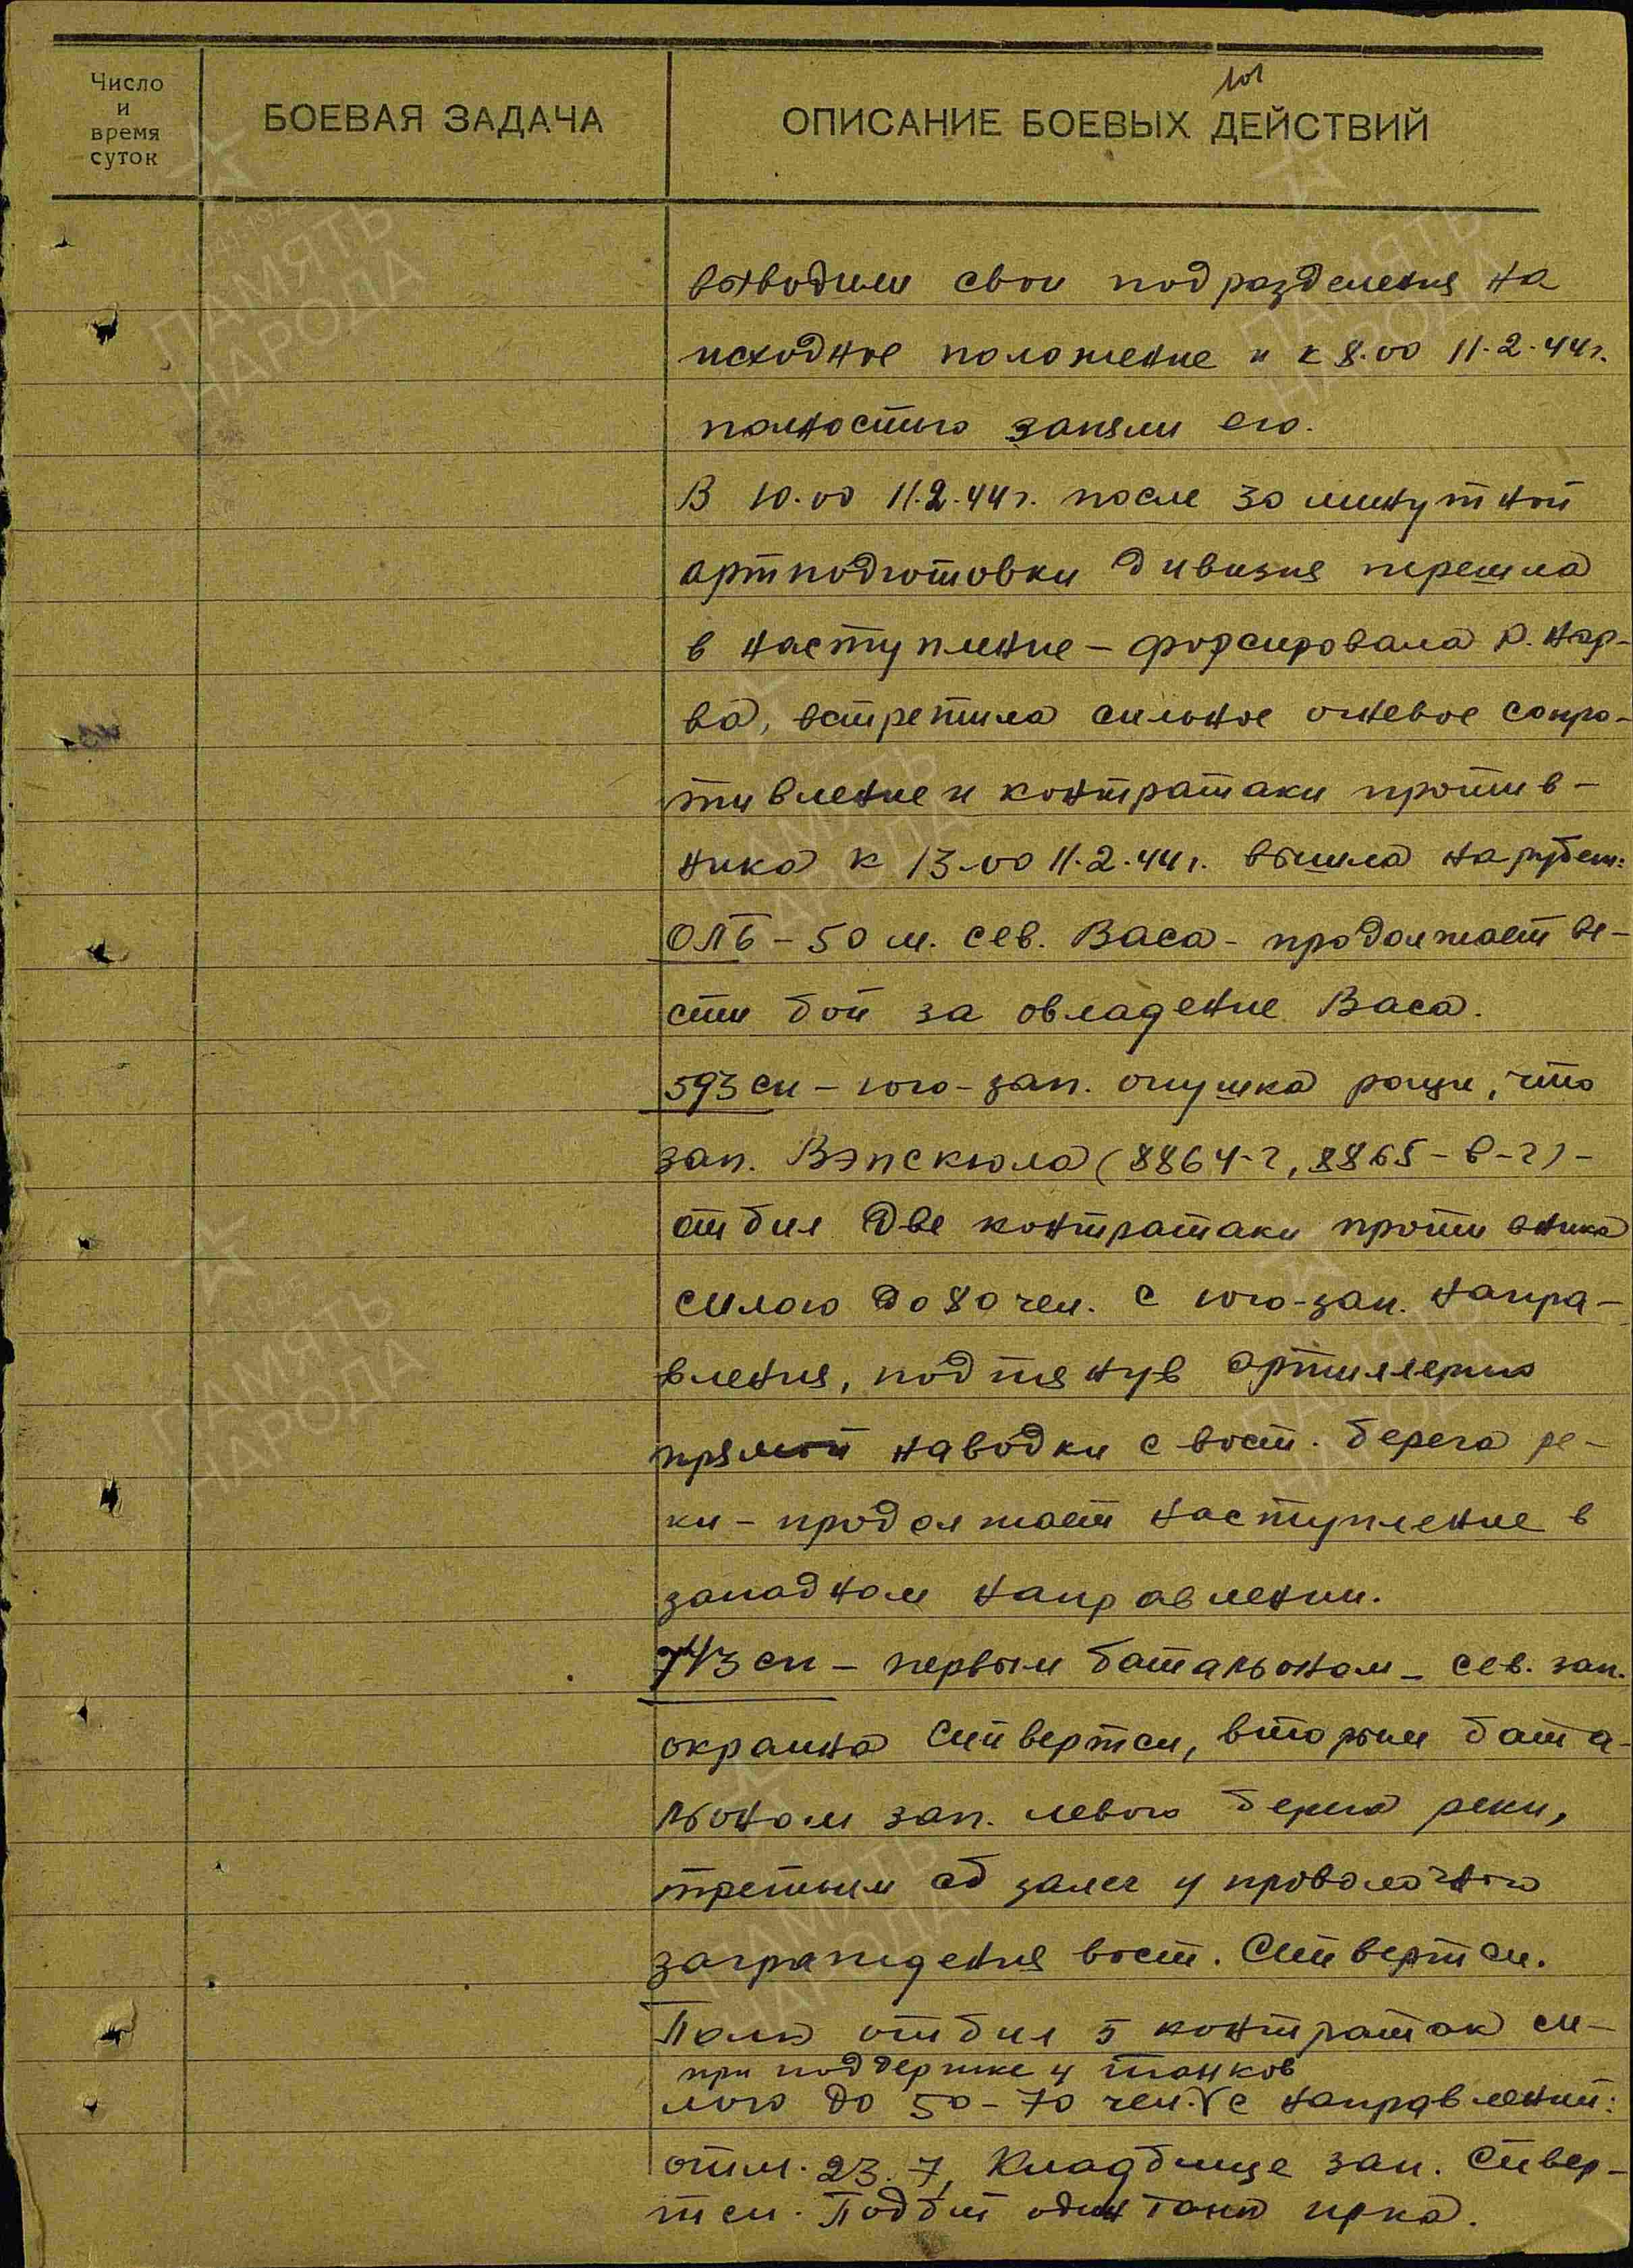 101
Число
и
время
суток
БОЕВАЯ ЗАДАЧА
ОПИСАНИЕ БОЕВЫХ ДЕЙСТВИЙ
выводили свои подразделения на
исходное положение и к 8.00 11.2.44г.
полностью заняли его.
В 10.00 11.2.44г. после 30 минутной
артподготовки дивизия перешла
в наступление – форсировала р. Нар-
ва, встретила сильное огневое сопро-
тивление и контратаки против-
ника к 13.00 11.2.44г. вышла на рубеж:
ОЛБ – 50 м. сев. Васа – продолжает ве-
сти бой за овладение Васа.
593 сп – юго-зап. опушка рощи, что
зап. Вэпскюла (8864-г, 8865-в-г) –
отбил две контратаки противника
силою до 80 чел. с юго-зап. напра-
вления, подтянув артиллерию
прямой наводки с вост. берега ре-
ки – продолжает наступление в
западном направлении.
743 сп – первым батальоном – сев. зап.
окраина Сивертси, вторым бата-
льоном зап. левого берега реки,
третьим сб залег у проволочного
заграждения вост. Сивертси.
Полк отбил 5 контратак си-
при поддержке 4 танков
лою до 50–70 чел. V с направлений:
отм. 23.7, Кладбище зап. Сивер-
тси. Подбит один танк пр-ка.
ПАМЯТЬ
НАРОДА
ПАМЯТЬ
НАРОДА
ПАМЯТЬ
НАРОДА
ПАМЯТЬ
НАРОДА
ПАМЯТЬ
НАРОДА
ПАМЯТЬ
НАРОДА